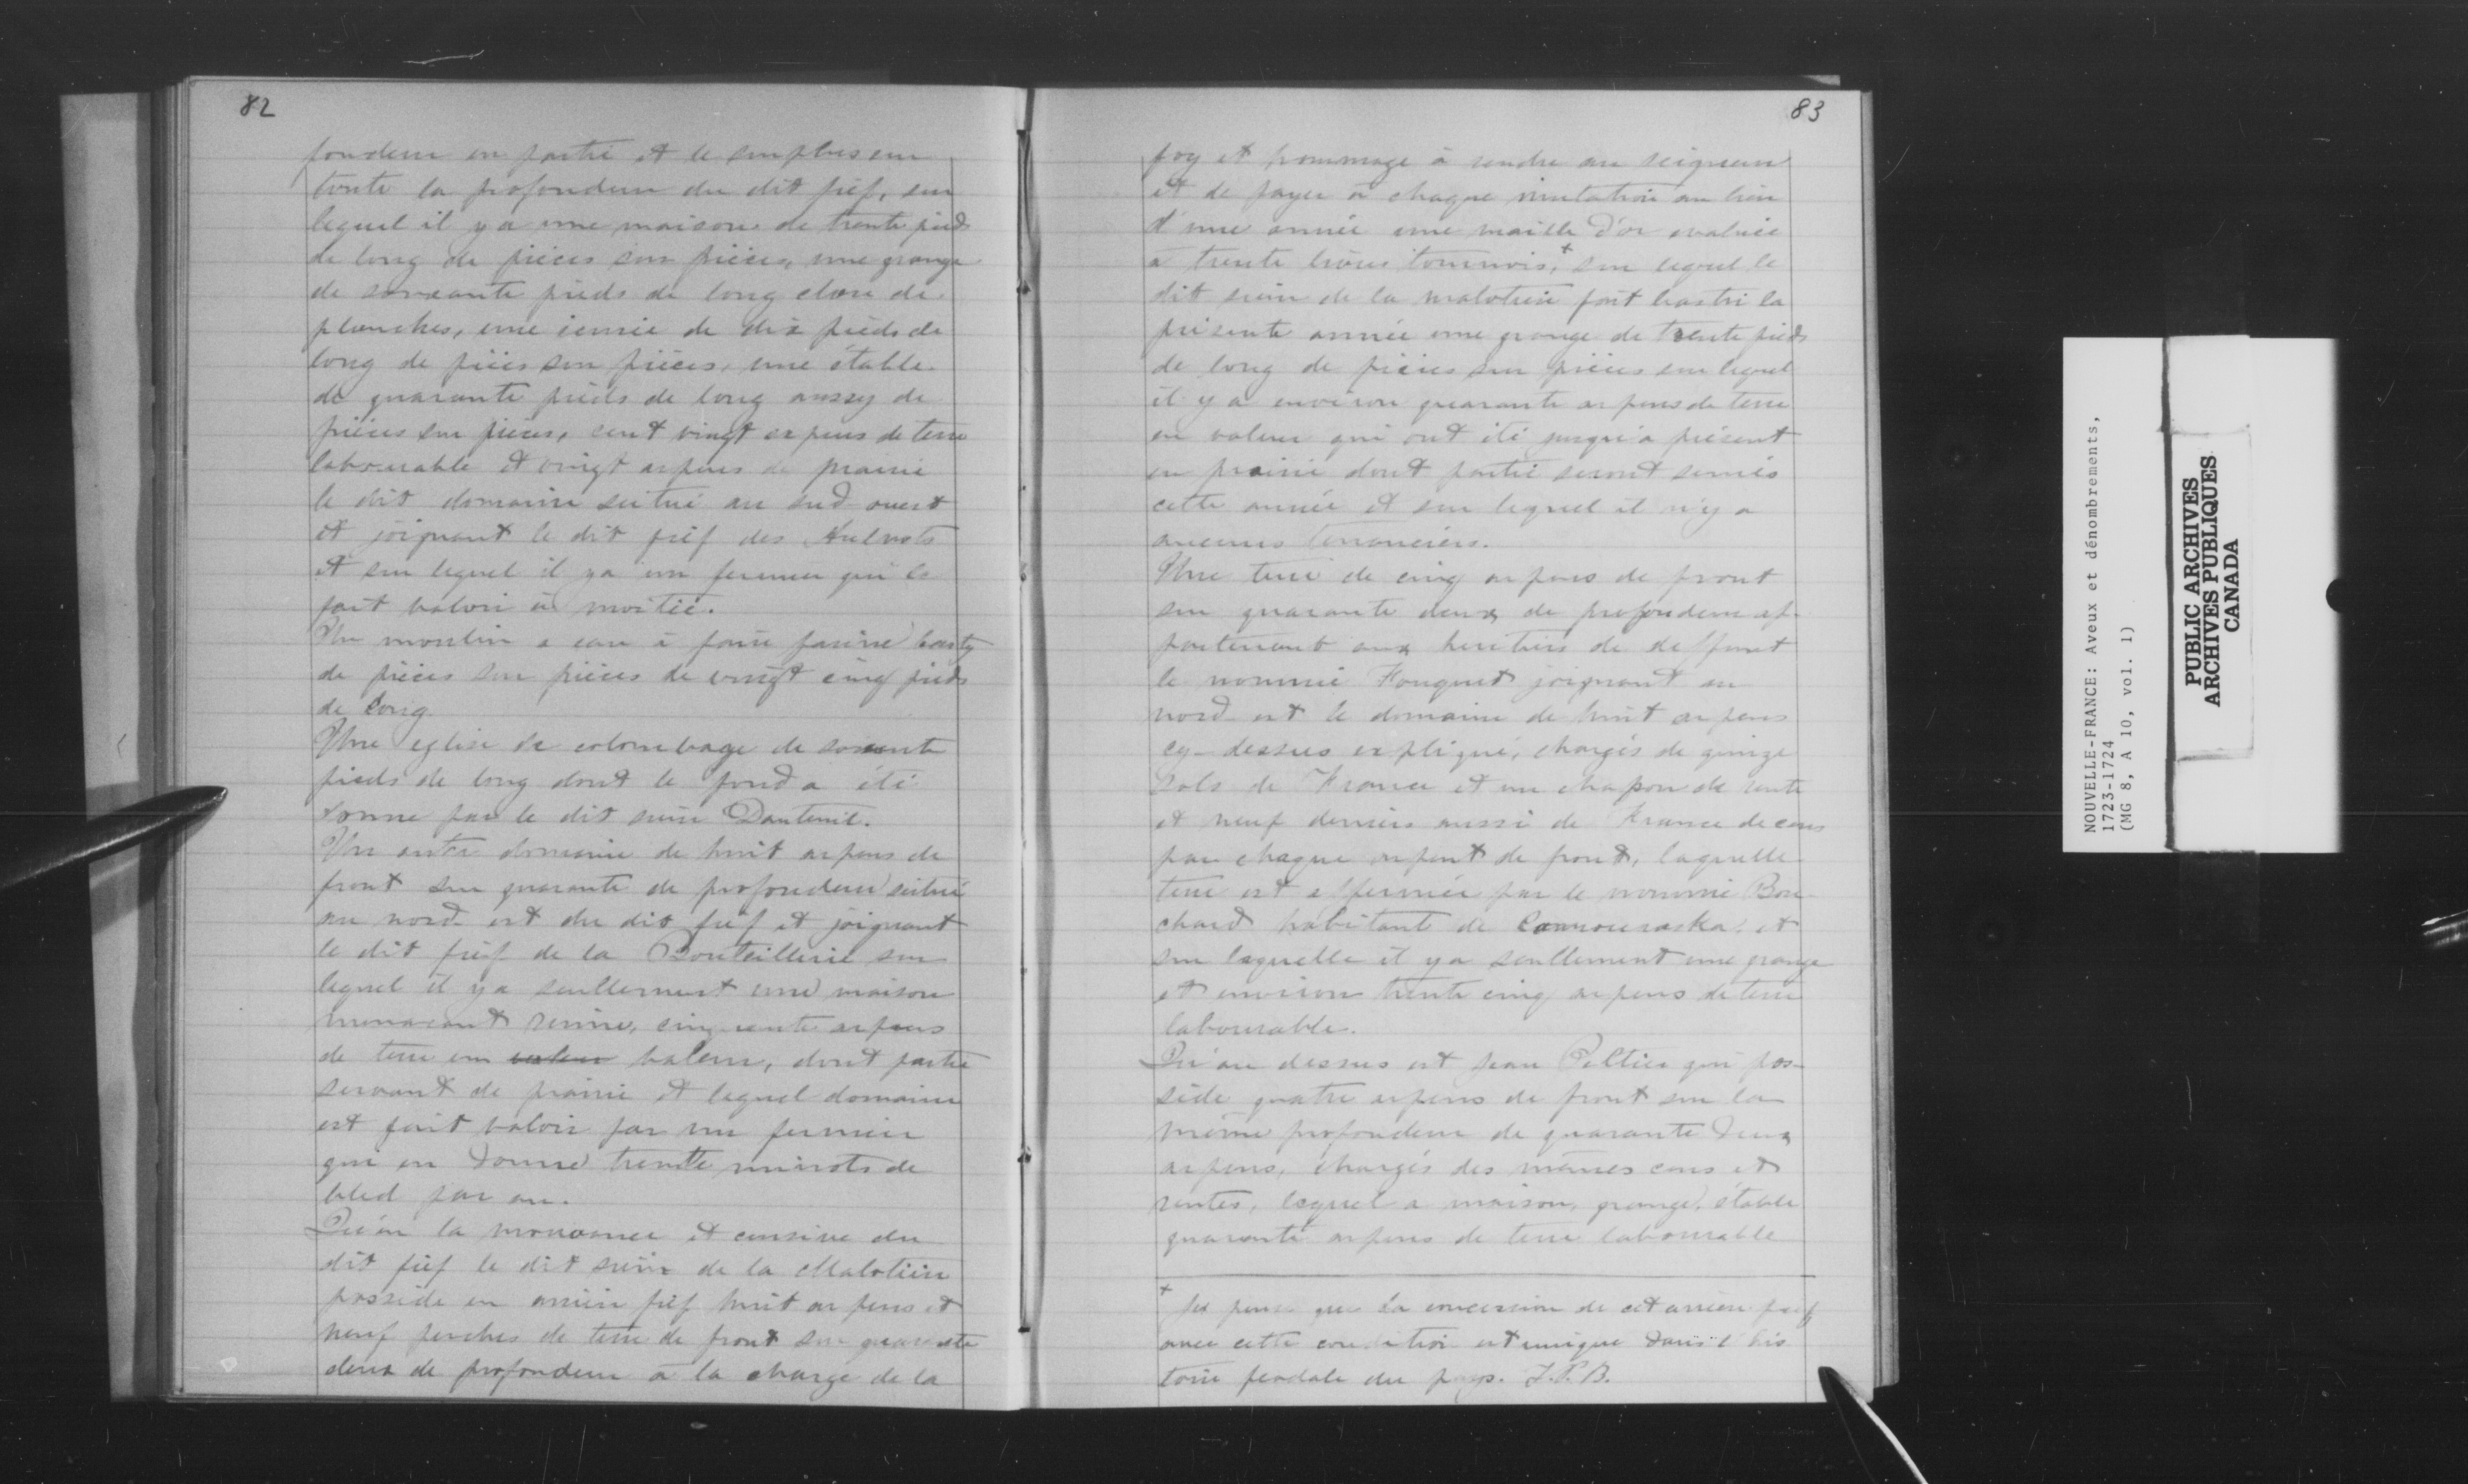 82
fondeur en partie et le surplus sur
toute la profondeur du dit fief, sur
lequel il y a une maison de trente pieds
de long de pièces sur pièces, une grange
de soixante pieds de long close de
planches, une écurie de dix pieds de
long de pièces sur pièces, une étable
de quarante pieds de long aussy de
pièces sur pièces, cent vingt arpens de terre
labourable et vingt arpens de prairie
le dit domaine scitué au sud ouest
et joignant le dit fief des Aulnets
et sur lequel il y a un fermier qui le
fait valoir à moitié.
Un moulin a eau à faire farine basty
de pièces sur pièces de vingt cinq pieds
de long
Une eglise de colombage de soixante
pieds de long dont le fond a été
donné par le dit sieur Dauteuil.
Un autre domaine de huit arpens de
front sur quarante de profondeur scitué
au nord est du dit fief et joignant
le dit fief de la Bouteillerie sur
lequel il y a seullement une maison
menacant ruine, cinquante arpens
de terre en valeur valeur, dont partie
servant de prairie et lequel domaine
est fait valoir par un fermier
qui en donne trente minots de
bled par an.
Qu'en la mouvance et censive du
dit fief le dit sieur de la Malotière
possède en arrière fief huit arpens et
neuf perches de terre de front sur quarante
deux de profondeur à la charge de la
83
foy et hommage à rendre au seigneur
et de payer à chaque mutation au lieu
d'une année une maille d'or evaluée
à trente livres tournois,+ sur lequel le
dit sieur de la malotière fait bastir la
présente année une grange de trente pieds
de long de pièces sur pièces sur lequel
il y a environ quarante arpens de terre
en valeur qui ont été jusqu'à présent
en prairie dont partie seront semés
cette année et sur lequel il n'y a
aucuns tenanciers.
Une terre de cinq arpens de front
sur quarante deux de profondeur ap-
partenant aux heritiers de deffunt
le nommé Fouquet joignant au
nord est le domaine de huit arpens
cy-dessus expliqué, chargés de quinze
Sols de France et un chapon de rente
et neuf deniers aussi de France de cens
par chaque arpent de front, laquelle
terre est affermée par le nommé Bou
chard habitant de Camouraska et
sur laquelle il y a seullement une grange
et environ trente cinq arpens de terre
labourable.
Qu'au dessus est Jean Peltier qui pos-
sède quatre arpens de front sur la
même profondeur de quarante deux
arpens, chargés des mêmes cens et
rentes, lequel a maison, grange, étable
quarante arpens de terre labourable
+ Je pense que la concession de cet arrière fief
avec cette condition est unique dans l'his
toire féodale du pays. J.P.B.
NOUVELLE-FRANCE: Aveux et dénombrements,
1723-1724
(MG 8, A 10, vol. 1)
PUBLIC ARCHIVES
ARCHIVES PUBLIQUES
CANADA